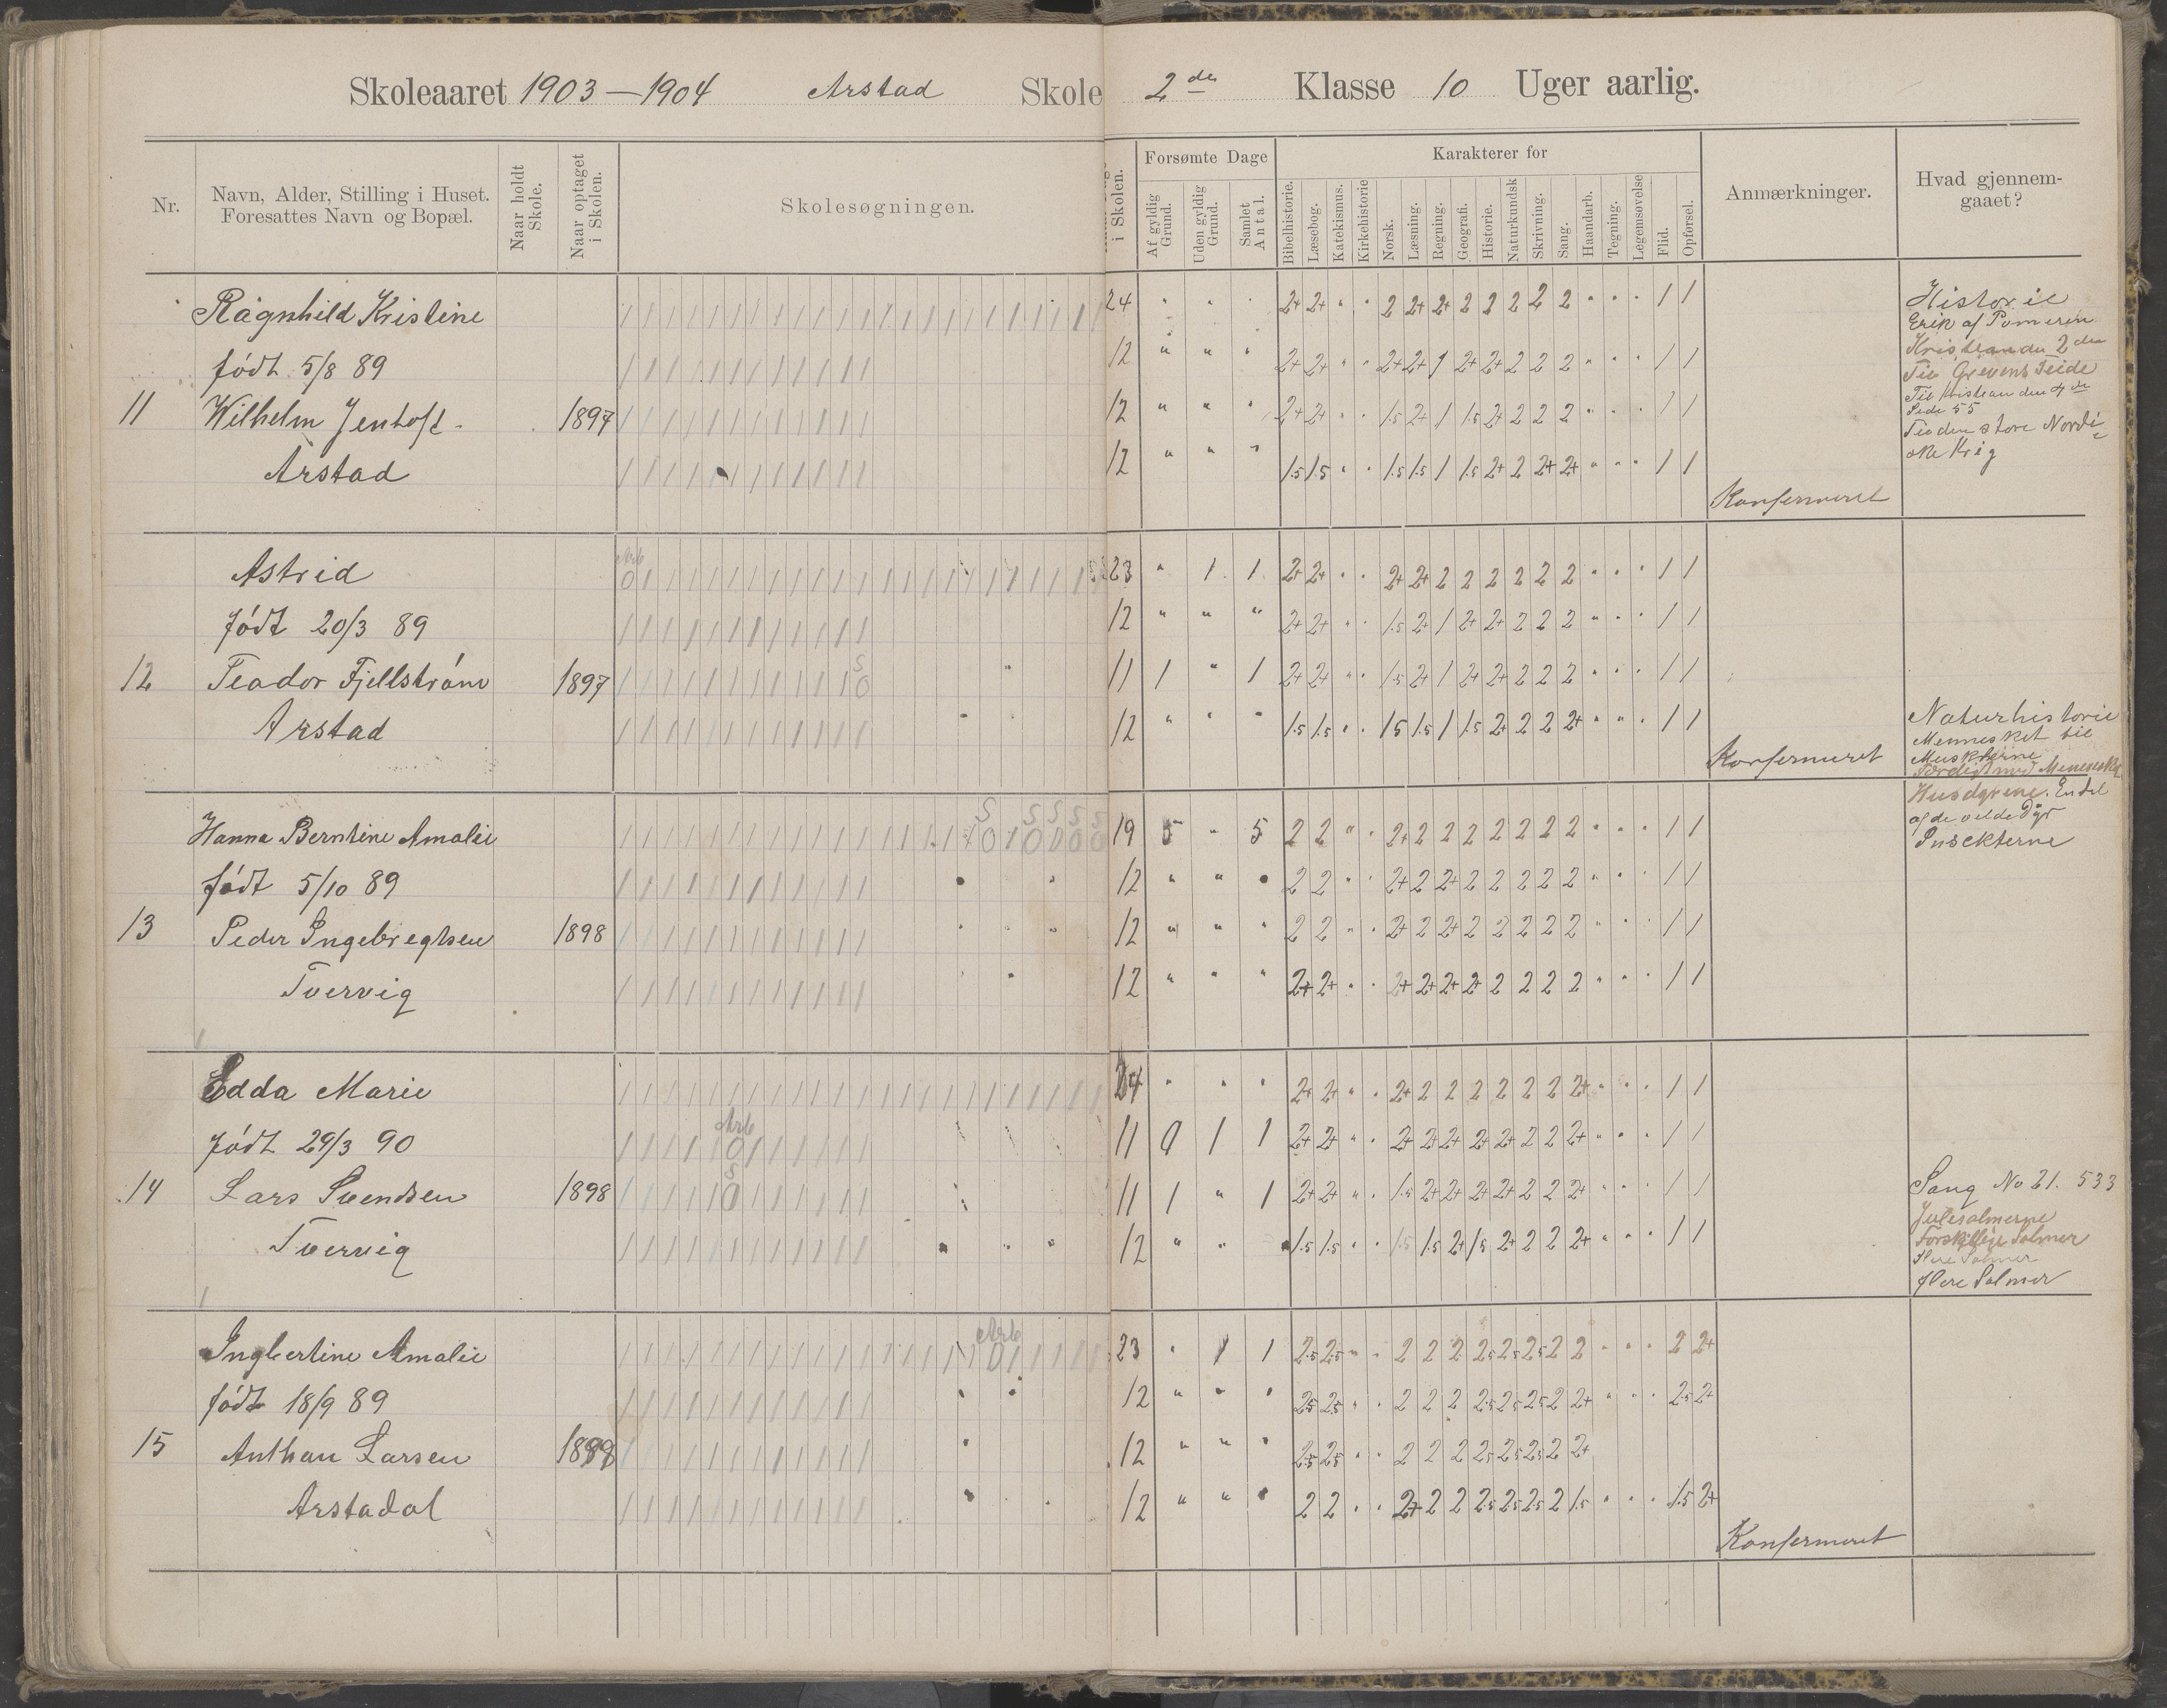 Skoleaaret 1903-1904 Arstad Skole 2de Klasse 10 Uger aarlig.
Nr.
Navn, Alder, Stilling i Huset.
Foresattes Navn og Bopæl.
Naar holdt
Skole.
Naar optaget
i Skolen.
Skolesøgningen.
i Skolen.
Forsømte Dage
Af gyldig
Grund.
Uden gyldig
Grund.
Samlet
Antal.
Karakterer for
Bibelhistorie.
Læsebog.
Katekismus.
Kirkehistorie
Norsk.
Læsning.
Regning.
Geografi.
Historie.
Naturkundsk
Skrivning.
Sang.
Haandarb.
Tegning.
Legemsøvelse
Flid.
Opførsel.
Anmærkninger.
Hvad gjennem-
gaaet?
Ragnhild Kristine
født 5/8 89
11 Wilhelm Jentoft. 1897
Arstad
24 " " " 2+ 2+ " " 2 2+ 2+ 2 2 2 2 2 " " " 1 1
12 " " " 2+ 2+ " " 2+ 2+ 1 2+ 2+ 2 2 2 " " " 1 1
12 " " " 2+ 2+ " " 1.5 2+ 1 1.5 2+ 2 2 2 " " " 1 1
12 " " " 1.5 1.5 " " 1.5 1.5 1 1.5 2+ 2 2+ 2+ " " " 1 1
Konfermeret
Historie
Erik af Pomeren
Kristian den 2den
Til Grevens Feide
Til Kristian den 4de
Side 55
Til den store Nordi-
ske Krig
Astrid
født 20/3 89
12 Teador Fjellstrøm 1897
Arstad
23 " 1 1 2+ 2+ " " 2+ 2+ 2 2 2 2 2 2 " " " 1 1
12 " " " 2+ 2+ " " 1.5 2+ 1 2+ 2+ 2 2 2 " " " 1 1
11 1 " 1 2+ 2+ " " 1.5 2+ 1 2+ 2+ 2 2 2 " " " 1 1
12 " " " 1.5 1.5 " " 1.5 1.5 1 1.5 2+ 2 2 2+ " " " 1 1
Konfermeret
Naturhistorie
Mennesket til
Musklerne
Færdig med Mennesket
Husdyrene. En del
af de vilde Dyr
Insekterne
Hanna Berntine Amalie
født 5/10 89
13 Peder Ingebregtsen 1898
Tvervig
19 5 " 5 2 2 " " 2+ 2 2 2 2 2 2 2 " " " 1 1
12 " " " 2 2 " " 2+ 2 2+ 2 2 2 2 2 " " " 1 1
12 " " " 2 2 " " 2+ 2 2+ 2 2 2 2 2 " " " 1 1
12 " " " 2+ 2+ " " 2+ 2+ 2+ 2+ 2 2 2 2 " " " 1 1
Edda Marie
født 29/3 90
14 Lars Svendsen 1898
Tvervig
24 " " " 2+ 2+ " " 2+ 2 2 2 2 2 2 2+ " " " 1 1
11 0 1 1 2+ 2+ " " 2+ 2+ 2+ 2+ 2+ 2 2 2+ " " " 1 1
11 1 " 1 2+ 2+ " " 1.5 2+ 2+ 2+ 2+ 2 2 2+ " " " 1 1
12 " " " 1.5 1.5 " " 1.5 1.5 2+ 1.5 2+ 2 2 2+ " " " 1 1
Sang No 21. 533
Julesalmerne
Forskjellige Salmer
flere Salmer
flere Salmer
Ingbertine Amalie
født 18/9 89
15 Anthau Larsen 1898
Arstadal
23 " 1 1 2.5 2.5 " " 2 2 2 2.5 2.5 2.5 2 2 " " " 2 2+
12 " " " 2.5 2.5 " " 2 2 2 2.5 2.5 2.5 2 2+ " " " 2.5 2+
12 " " " 2.5 2.5 " " 2 2 2 2.5 2.5 2.5 2 2+
12 " " " 2 2 " " 2+ 2 2 2.5 2.5 2.5 2 1.5 " " " 1.5 2+
Konfermeret